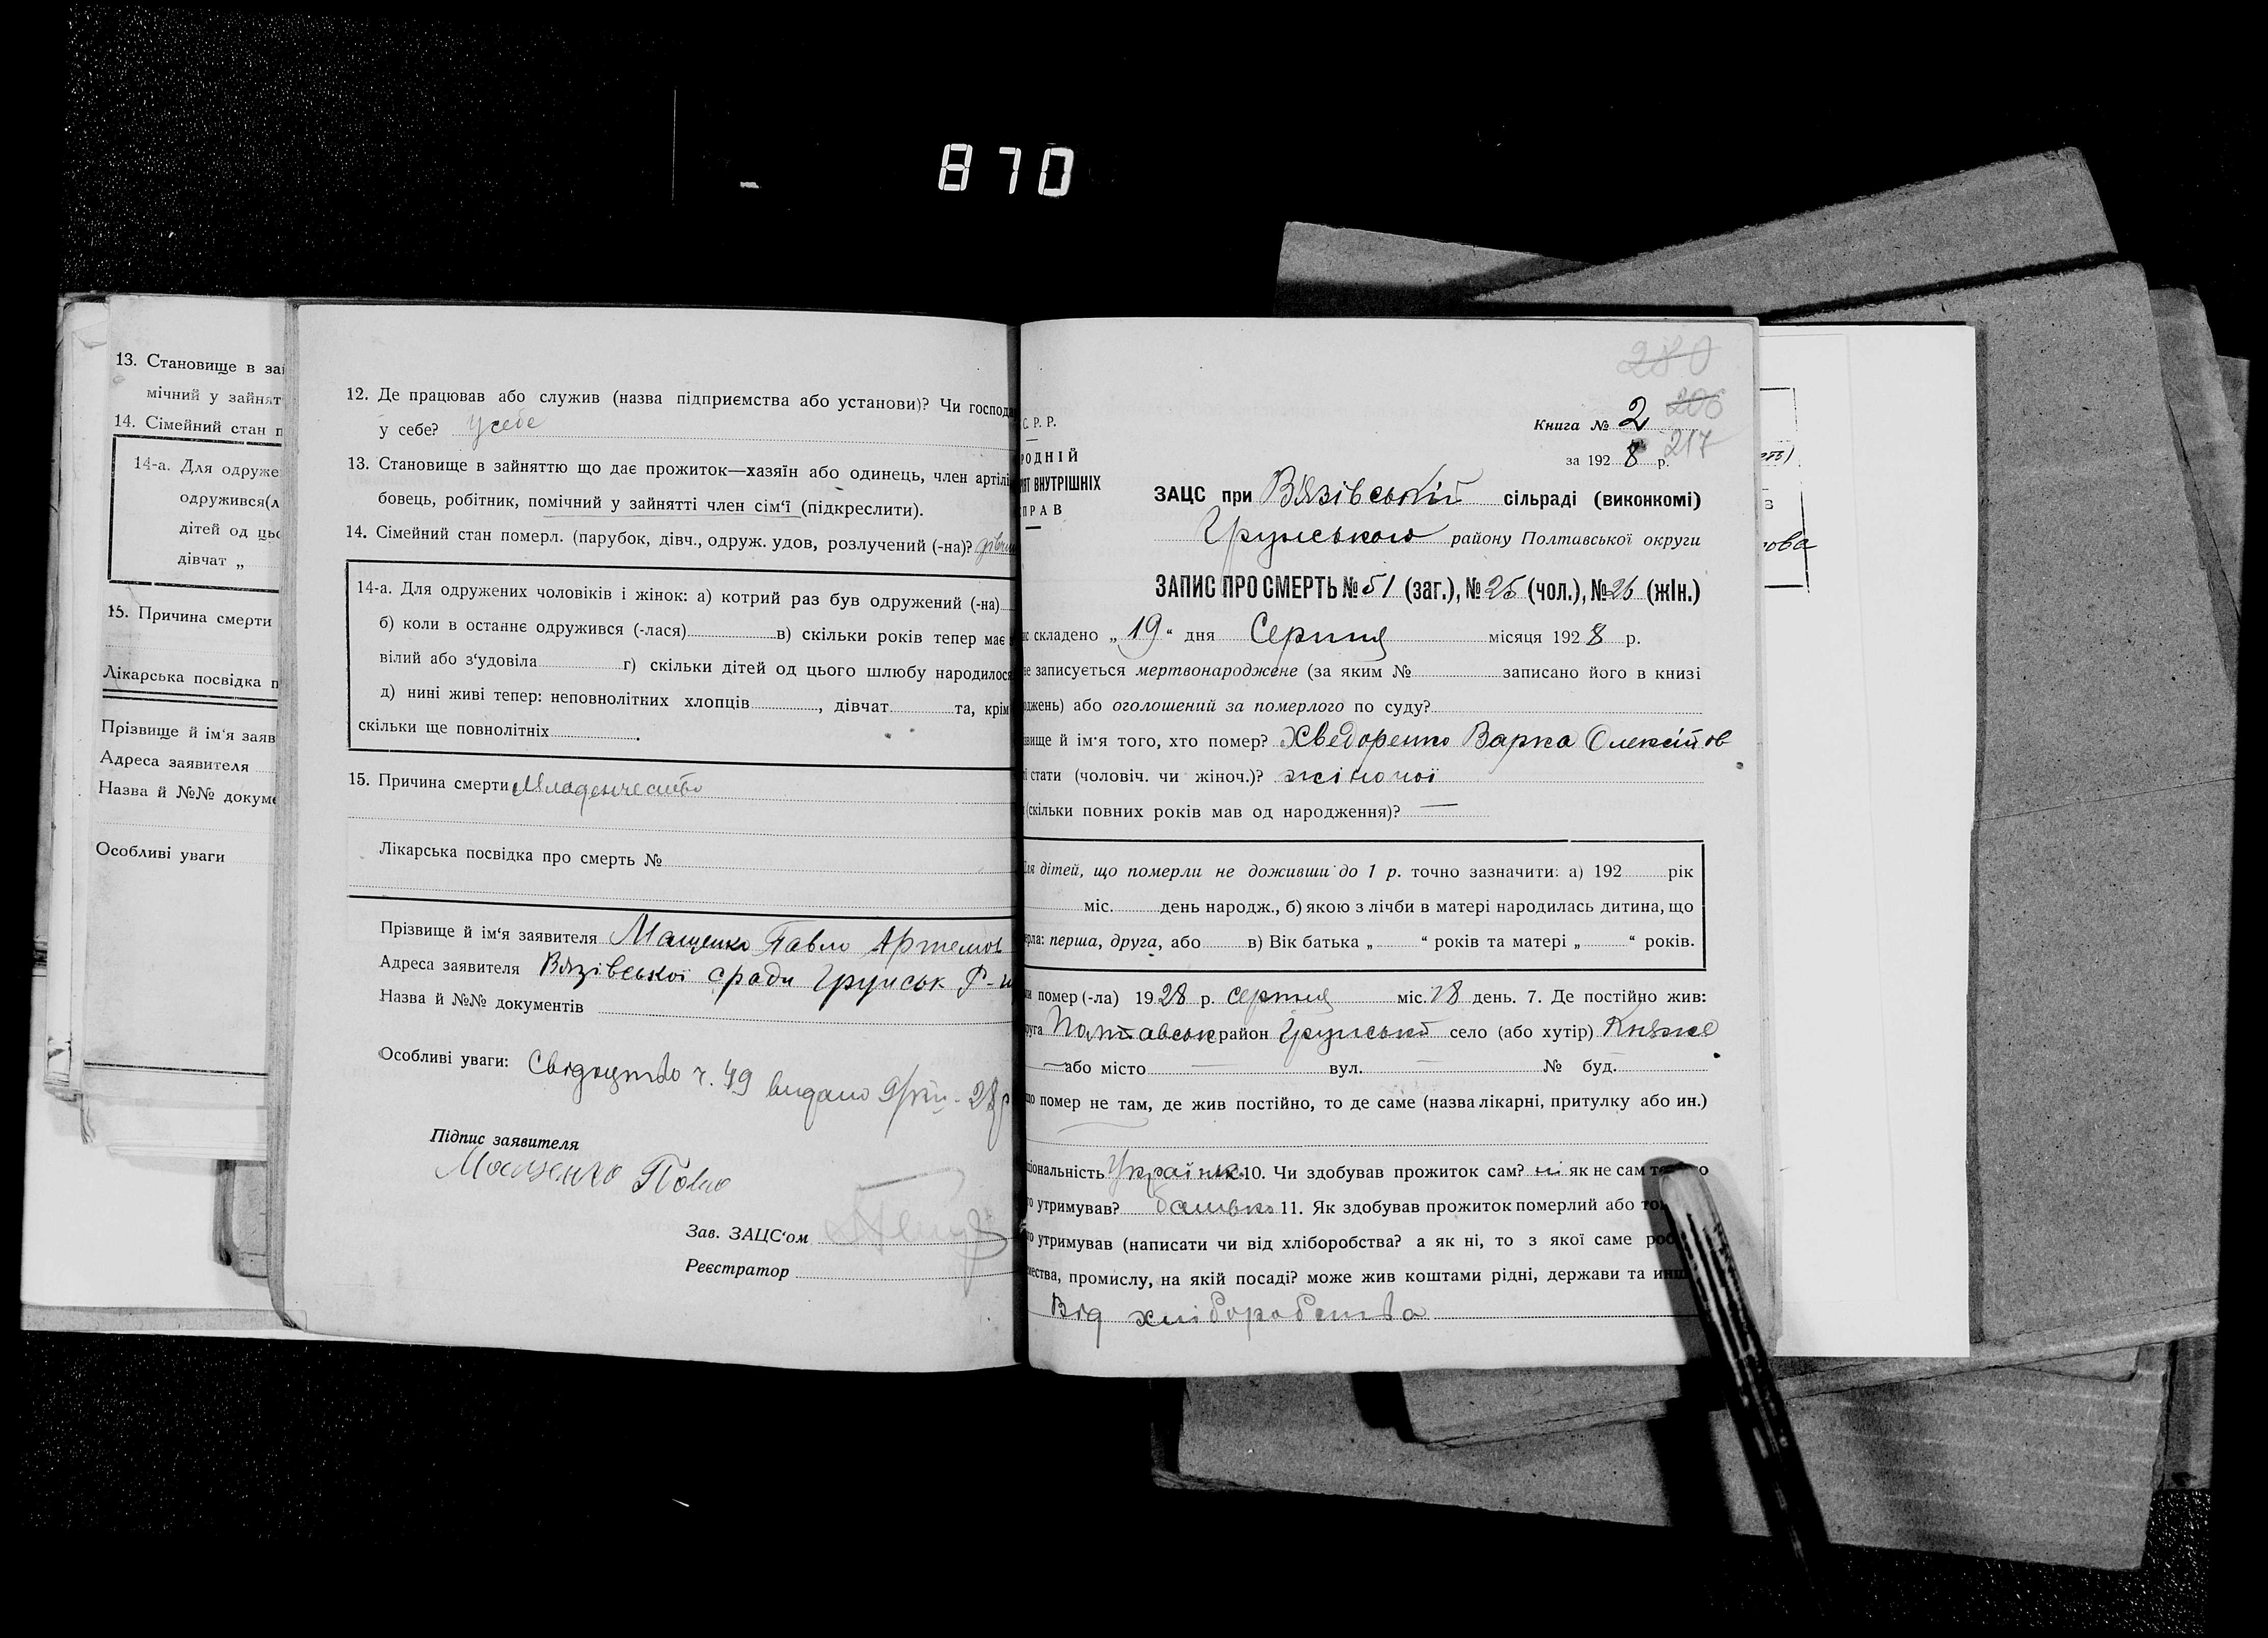 870
13. Становище в зай
мічний у зайнят
14. Сімейний стан п
14-а. Для одруже
одружився(л
дітей од цьо
дівчат „
15. Причина смерти
Лікарська посвідка п
Прізвище й ім'я заяв
Адреса заявителя
Назва й №№ докуме
Особливі уваги
12. Де працював або служив (назва підприємства або установи)? Чи господа
у себе? у себе
13. Становище в зайняттю що дає прожиток—хазяїн або одинець, член артілі
бовець, робітник, помічний у зайнятті член сім'ї (підкреслити).
14. Сімейний стан померл. (парубок, дівч., одруж. удов, розлучений (-на)?
14-а. Для одружених чоловіків і жінок: а) котрий раз був одружений (-на)
б) коли в останнє одружився (-лася) в) скільки років тепер має з
вілий або з'удовіла г) скільки дітей од цього шлюбу народилося
д) нині живі тепер: неповнолітних хлопців , дівчат та, крім
скільки ще повнолітніх .
15. Причина смерти Младенчество
Лікарська посвідка про смерть №
Прізвище й ім'я заявителя Мащенко Павло Артемов
Адреса заявителя Вязівської сради Грунськ Р-н
Назва й №№ документів
Особливі уваги: Свідоцтво ч. 49 видано 28 р
Підпис заявителя
Мащенко Павло
Зав. ЗАЦС'ом
Реєстратор
280
206
217
С. Р. Р.
РОДНІЙ
ЯТ ВНУТРІШНІХ
ПРАВ
Книга № 2
за 192 8 р.
ЗАЦС при Вязівській сільраді (виконкомі)
Грунського району Полтавської округи
ЗАПИС ПРО СМЕРТЬ № 51 (заг.), № 25 (чол.), № 26 (жін.)
ис складено „ 19 “ дня Серпня місяця 192 8 р.
не записується мертвонароджене (за яким № записано його в книзі
оджень) або оголошений за померлого по суду?
звище й ім'я того, хто помер? Хведоренко Варка Олексійов
ї стати (чоловіч. чи жіноч.)? жіночої
(скільки повних років мав од народження)? —
Для дітей, що померли не доживши до 1 р. точно зазначити: а) 192 рік
міс. день народж., б) якою з лічби в матері народилась дитина, що
ерла: перша, друга, або в) Вік батька „ “ років та матері „ “ років.
ли помер (-ла) 19 28 р. серпня міс. 18 день. 7. Де постійно жив:
руга Полтавськ район Грунський село (або хутір) Княже
— або місто — вул. — № буд.
що помер не там, де жив постійно, то де саме (назва лікарні, притулку або ин.)
ціональність Українк. 10. Чи здобував прожиток сам? ні як не сам т о
го утримував? батько 11. Як здобував прожиток померлий або то
го утримував (написати чи від хліборобства? а як ні, то з якої саме роб
мества, промислу, на якій посаді? може жив коштами рідні, держави та инш
Від хліборобства